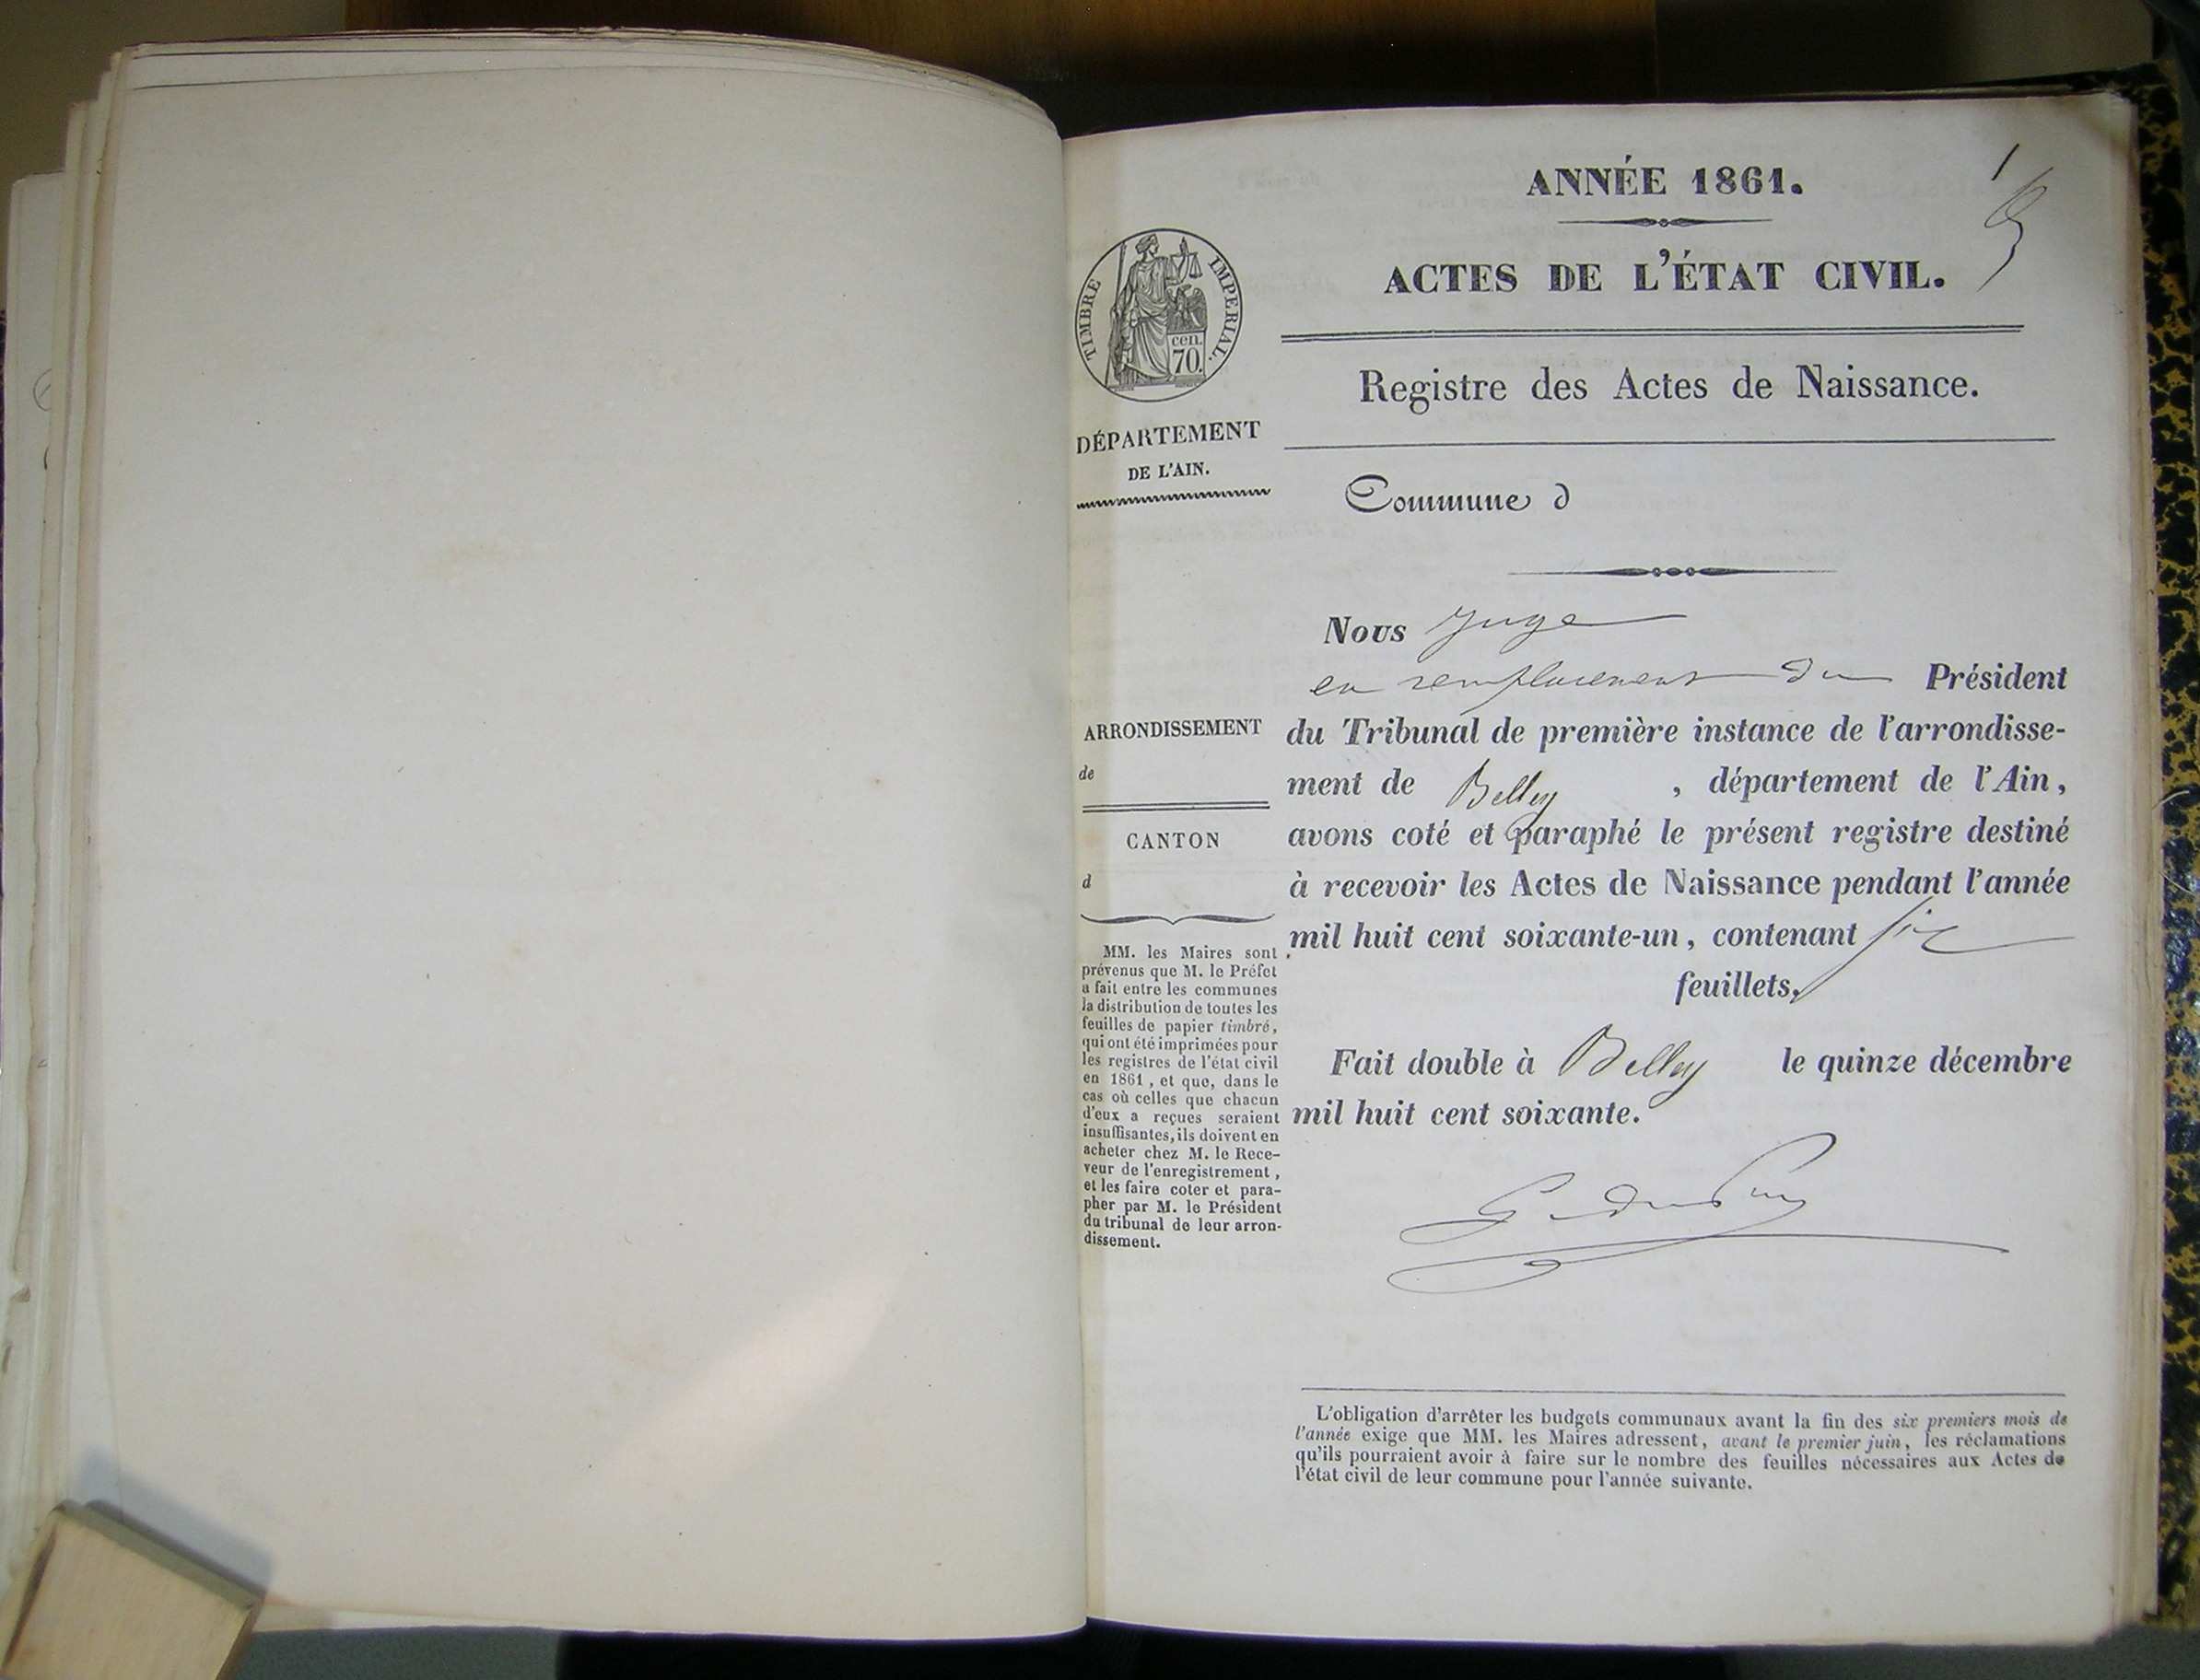 ANNÉE 1861.
1
ACTES DE L'ÉTAT CIVIL.
TIMBRE IMPERIAL.
cen.
70.
Registre des Actes de Naissance.
DÉPARTEMENT
DE L'AIN.
Commune d
Nous Juge
en remplacement du Président
ARRONDISSEMENT
de
du Tribunal de première instance de l'arrondisse-
ment de Belley , département de l'Ain,
avons coté et paraphé le présent registre destiné
à recevoir les Actes de Naissance pendant l'année
mil huit cent soixante-un, contenant six
feuillets,
CANTON
d
MM. les Maires sont
prévenus que M. le Préfet
a fait entre les communes
la distribution de toutes les
feuilles de papier timbré,
qui ont été imprimées pour
les registres de l'état civil
en 1861, et que, dans le
cas où celles que chacun
d'eux a reçues seraient
insuffisantes, ils doivent en
acheter chez M. le Rece-
veur de l'enregistrement,
et les faire coter et para-
pher par M. le Président
du tribunal de leur arron-
dissement.
Fait double à Belley le quinze décembre
mil huit cent soixante.
L'obligation d'arrêter les budgets communaux avant la fin des six premiers mois de
l'année exige que MM. les Maires adressent, avant le premier juin, les réclamations
qu'ils pourraient avoir à faire sur le nombre des feuilles nécessaires aux Actes de
l'état civil de leur commune pour l'année suivante.